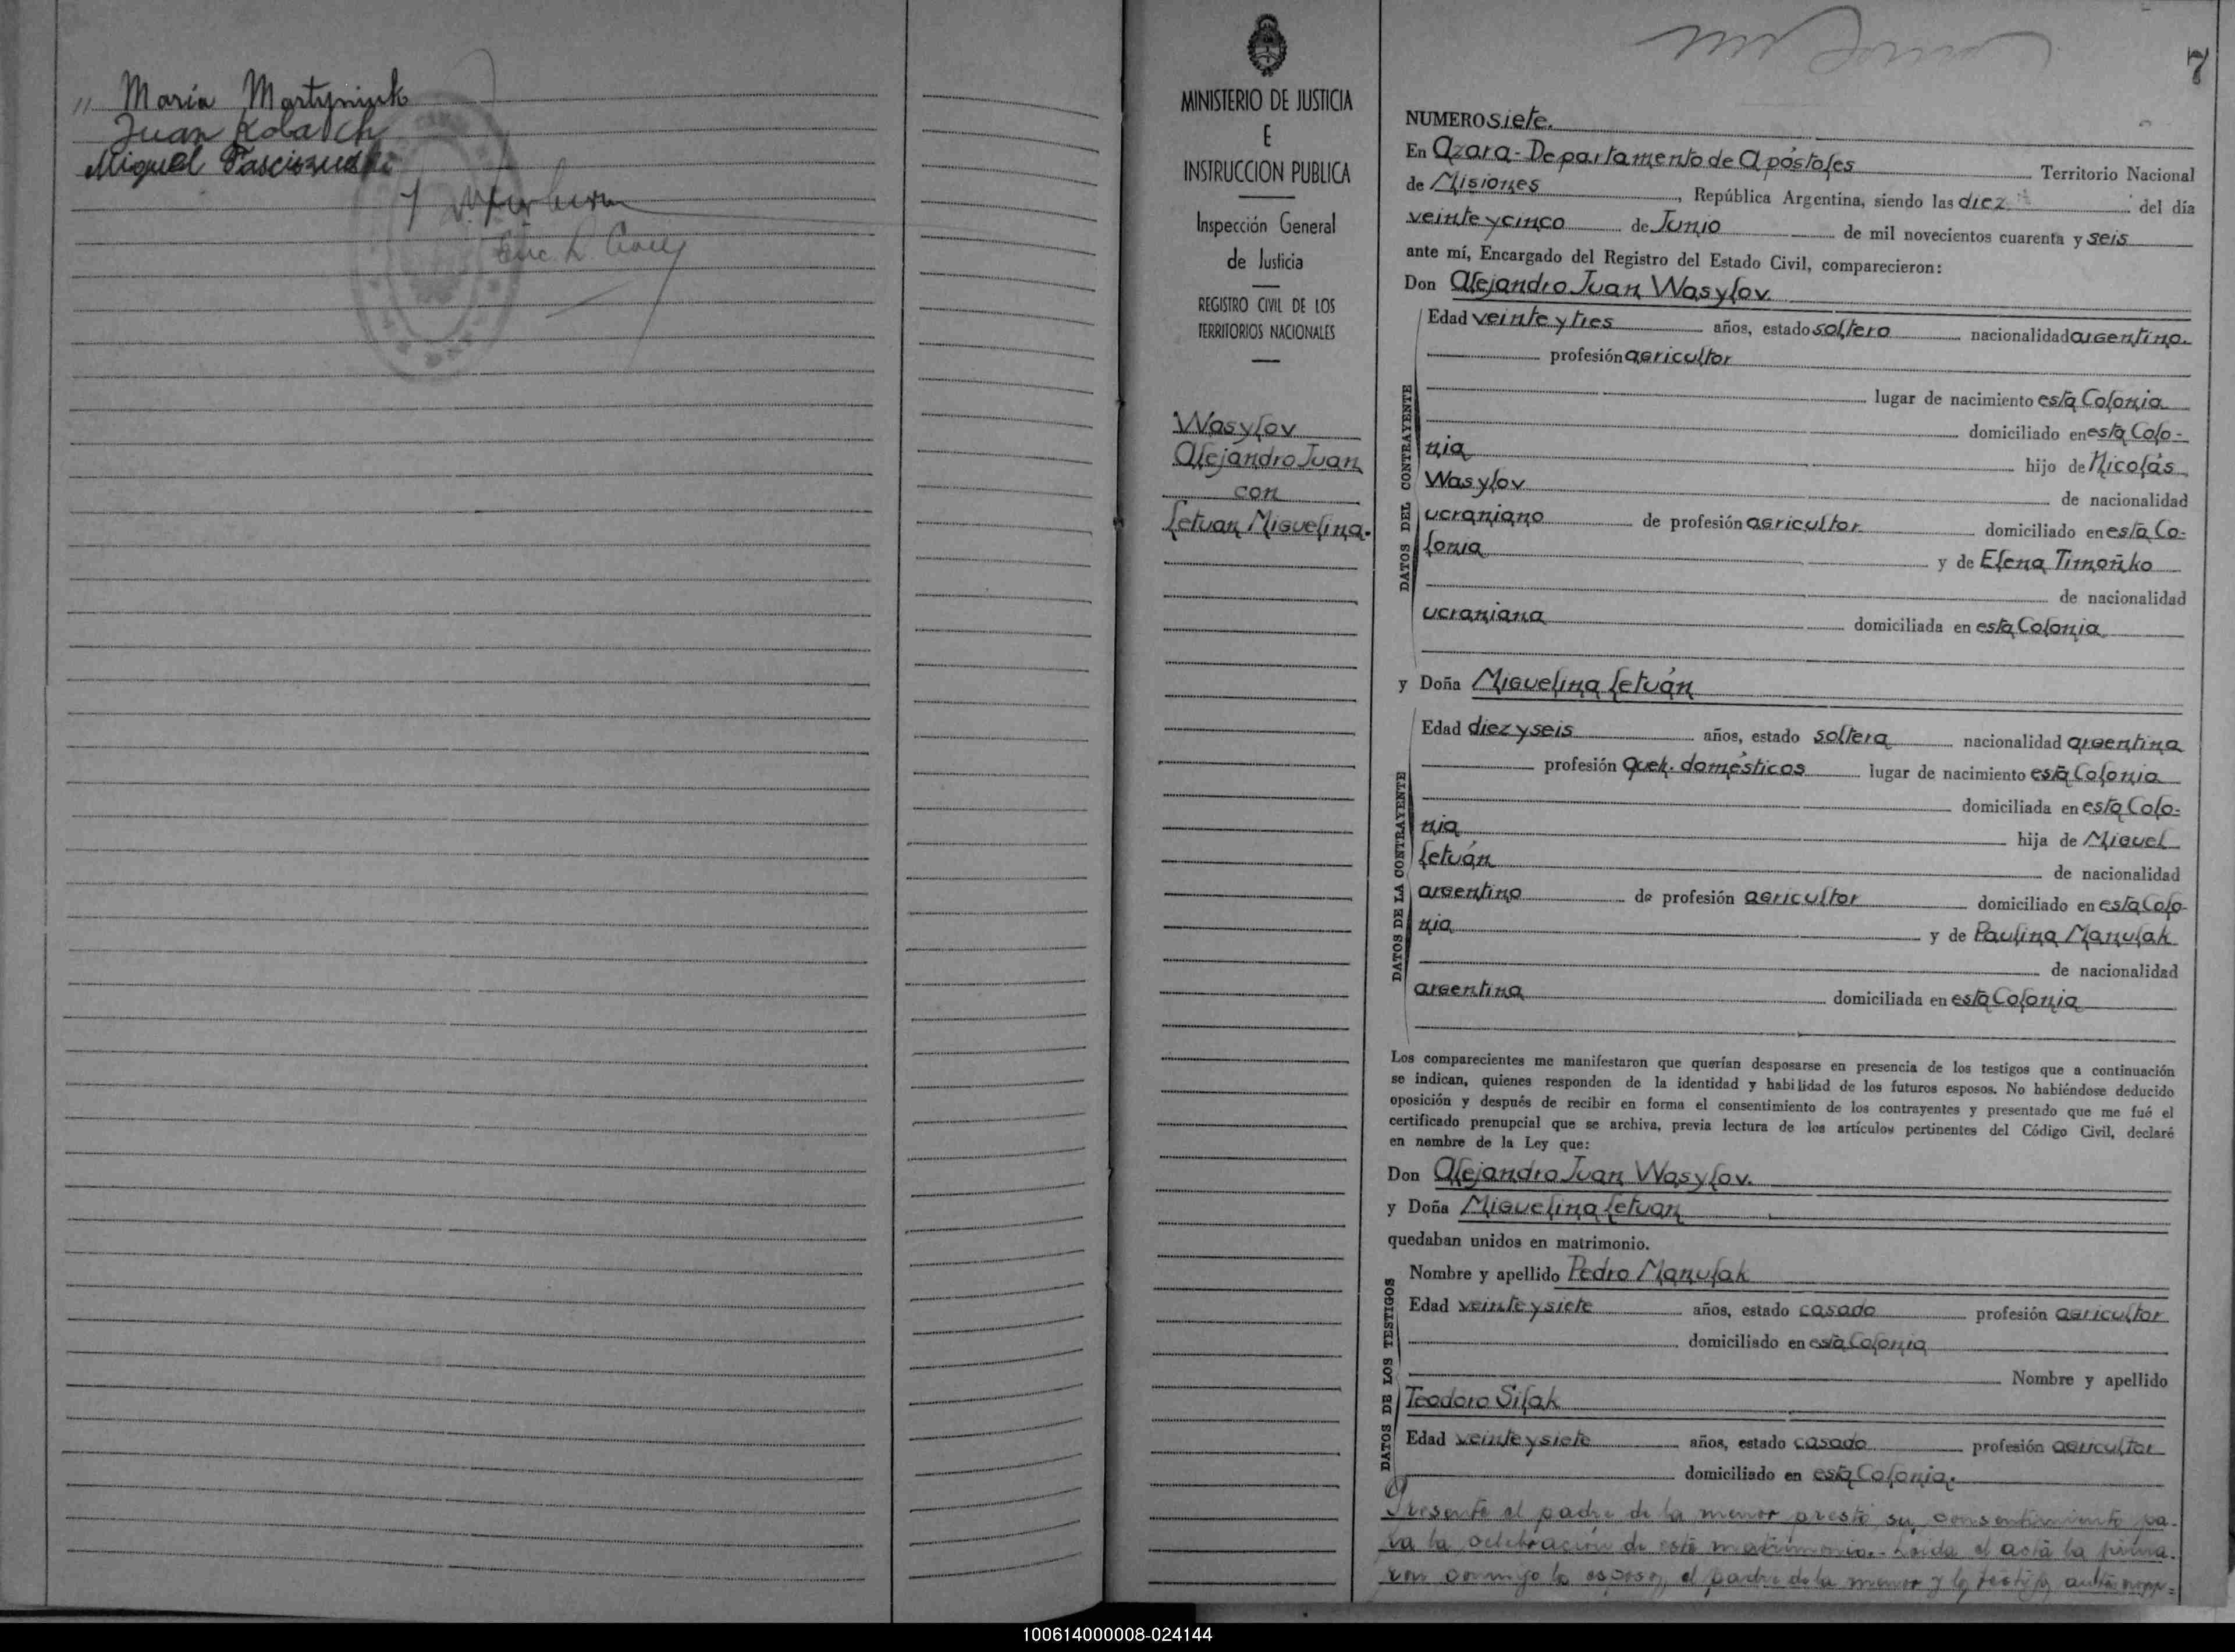 " María Martyniuk
Juan Kolaich
Miguel
MINISTERIO DE JUSTICIA
E
INSTRUCCION PUBLICA
Inspección General
de Justicia
REGISTRO CIVIL DE LOS
TERRITORIOS NACIONALES
Wasylov
Alejandro Juan
con
Letvan Miguelina.
7
NUMERO siete.
En Azara - Departamento de Apóstoles Territorio Nacional
de Misiones, República Argentina, siendo las diez del día
veinte y cinco de Junio de mil novecientos cuarenta y seis
ante mí, Encargado del Registro del Estado Civil, comparecieron:
Don Alejandro Juan Wasylov.
DATOS DEL CONTRAYENTE
Edad veinte y tres años, estado soltero nacionalidad argentino.
profesión agricultor
lugar de nacimiento esta Colonia
domiciliado en esta Colo-
nia hijo de Nicolás
Wasylov de nacionalidad
ucraniano de profesión agricultor domiciliado en esta Co-
lonia y de Elena Timoñko
de nacionalidad
ucraniana domiciliada en esta Colonia
y Doña Miguelina Letván
DATOS DE LA CONTRAYENTE
Edad diez y seis años, estado soltera nacionalidad argentina
profesión Queh. domésticos lugar de nacimiento esta Colonia
domiciliada en esta Colo-
nia hija de Miguel
Letván de nacionalidad
argentino de profesión agricultor domiciliado en esta Colo-
nia y de Paulina Manulak
de nacionalidad
argentina domiciliada en esta Colonia
Los comparecientes me manifestaron que querían desposarse en presencia de los testigos que a continuación
se indican, quienes responden de la identidad y habilidad de los futuros esposos. No habiéndose deducido
oposición y después de recibir en forma el consentimiento de los contrayentes y presentado que me fué el
certificado prenupcial que se archiva, previa lectura de los artículos pertinentes del Código Civil, declaré
en nombre de la Ley que:
Don Alejandro Juan Wasylov.
y Doña Miguelina Letvan
quedaban unidos en matrimonio.
DATOS DE LOS TESTIGOS
Nombre y apellido Pedro Manulak
Edad veinte y siete años, estado casado profesión agricultor
domiciliado en esta Colonia
Nombre y apellido
Teodoro Silak
Edad veinte y siete años, estado casado profesión agricultor
domiciliado en esta Colonia.
Presente el padre de la menor prestó su consentimiento pa-
ra la celebración de este matrimonio.- Leida el acta la firma-
ron conmigo los esposos, el padre de la menor y los testigos
100614000008-024144